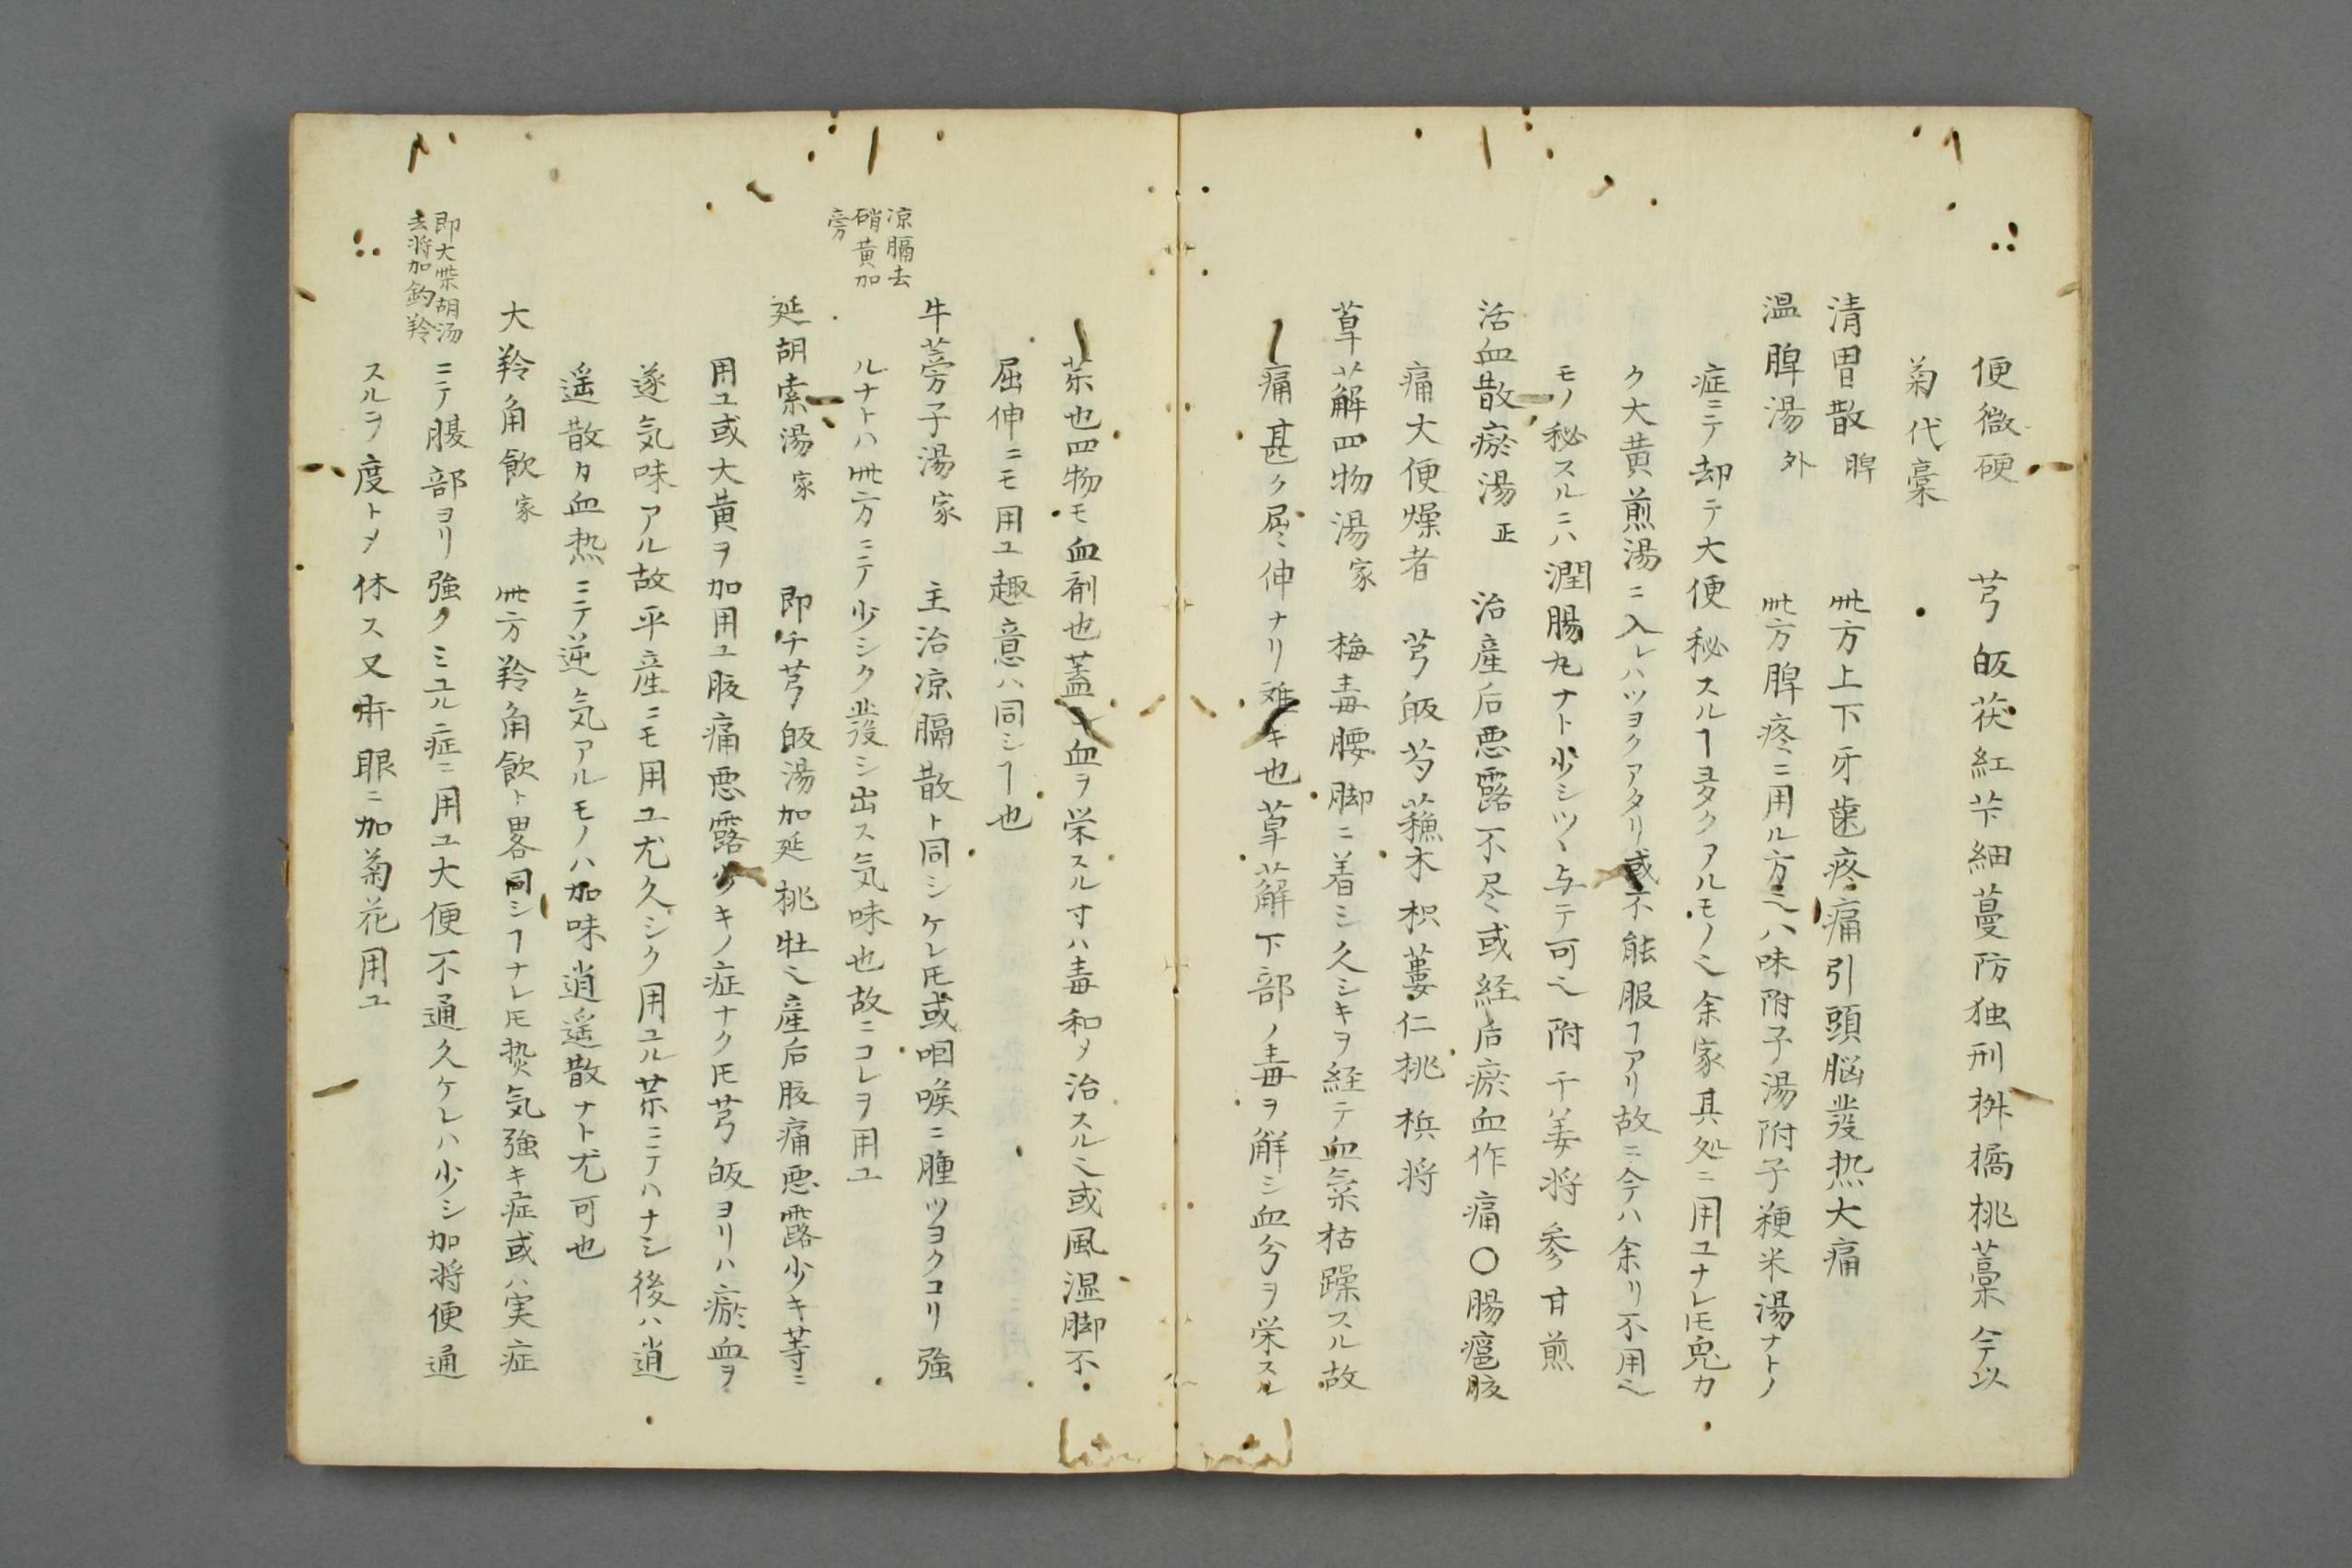 便微硬　芎皈茯紅芐細蔓防独刑桝橘桃藁今以
菊代藁
清胃散　脾　此方上下牙歯疼痛引頭脳發热大痛
温脾湯　外　此方脾疼ニ用ル方也八味附子湯附子粳米湯ナトノ
症ニテ却テ大便秘スルヿヨクアルモノ也余家其処ニ用ユナレ𪜈兎カ
ク大黄煎湯ニ入レハツヨクアタリ或不能服ヿアリ故ニ今ハ余リ不用也
モノ秘スルニハ潤腸丸ナト少シツヽ与テ可也附干姜将参甘煎
活血散瘀湯　正　治産后悪露不尽或経后瘀血作痛〇腸癰腹
痛大便燥者　芎皈芍蘓木枳蔞仁桃梹将
萆薢四物湯　家　梅毒腰脚ニ着シ久シキヲ経テ血氣枯躁スル故
痛甚ク屈伸ナリ難キ也萆薢下部ノ毒ヲ解シ血分ヲ栄スル
茶也四物モ血剤也蓋シ血ヲ栄スル寸ハ毒和メ治スル也或風湿脚不
屈伸ニモ用ユ趣意ハ同シヿ也
凉膈去
硝黄加
旁
牛蒡子湯　家　主治凉膈散ト同シケレ𪜈或咽喉ニ腫ツヨクコリ強
ルナトハ此方ニテ少シク發シ出ス気味也故ニコレヲ用ユ
延胡索湯　家　即チ芎皈湯加延桃牡也産后腹痛悪露少キ等ニ
用ユ或大黄ヲ加用ユ腹痛悪露少キノ症ナク𪜈芎皈ヨリハ瘀血ヲ
遂気味アル故平産ニモ用ユ尤久シク用ユル茶ニテハナシ後ハ逍
遥散カ血热ニテ逆気アルモノハ加味逍遥散ナト尤可也
大羚角飲　家　此方羚角飲ト畧同シヿナレ𪜈热気強キ症或ハ実症
即大柴胡汤
去将加釣羚
ニテ腹部ヨリ強クミユル症ニ用ユ大便不通久ケレハ少シ加将便通
スルヲ度トメ休ス又肝眼ニ加菊花用ユ